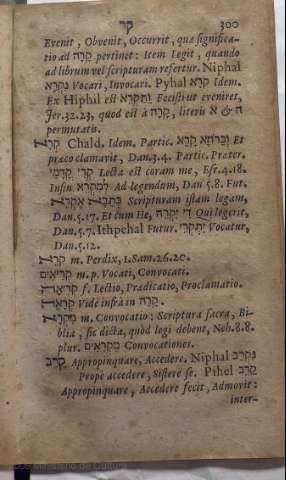 קר 300
Evenit, Obvenit, Occurrit, quæ significa-
tio ad קרה pertinet: Item Legit, quando
ad librum vel scripturam refertur. Niphal
נקרא Vocari, Invocari. Pyhal קרא Idem.
Ex Hiphil est ותקרא Fecisti ut eveniret,
Jer. 32. 23, quod est à קרה, literis א & ה
permutatis.
קרא Chald. Idem. Partic. וכרוזא קרא Et
præco clamavit, Dan. 3. 4. Partic. Prater.
קרי קדמי Lecta est coram me, Esr. 4. 18.
Infin. למקרא Ad legendum, Dan 5. 8. Fut.
כתבא אקרא Scripturam istam legam,
Dan. 5. 17. Et cum He, די יקרה Qui legerit,
Dan. 5. 7. Ithpehal Futur. יתקרי Vocatur,
Dan. 5. 12.
קרא m. Perdix, 1. Sam. 26. 20.
קריאים m. p. Vocati, Convocati.
קריאה f. Lectio, Prædicatio, Proclamatio.
קראה Vide infrà in קרה.
מקרא m. Convocatio: Scriptura sacra, Bi-
blia, sic dicta, quòd legi debent, Neh. 8. 8.
plur. מקראים Convocationes.
קרב Appropinquare, Accedere. Niphal נקרב
Prope accedere, Sistere se. Pihel קרב
Appropinquare, Accedere fecit, Admovit:
inter-
Ministerio de Cultura